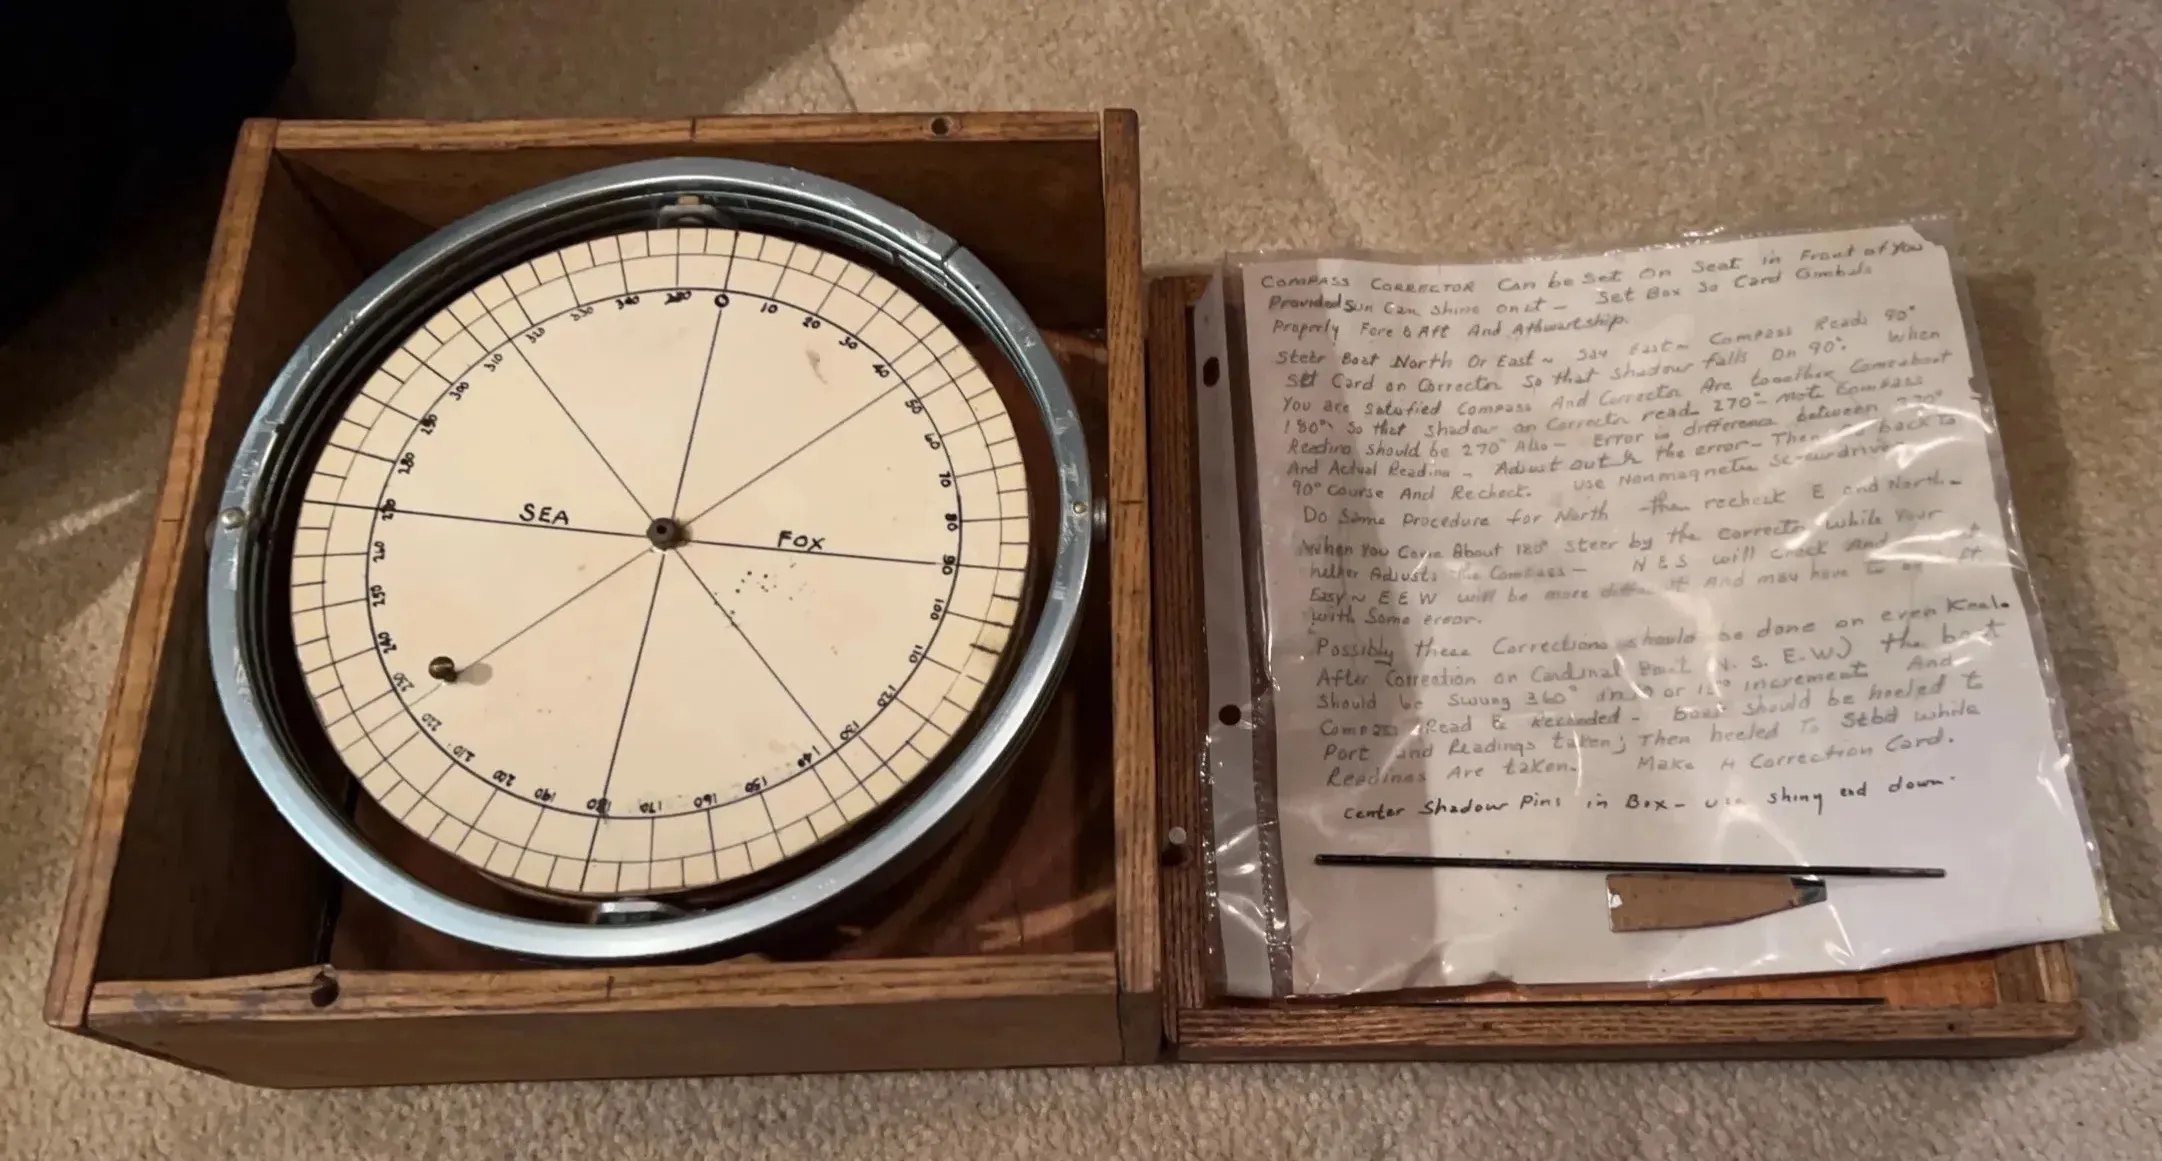 0
10
20
30
40
50
60
70
80
90
100
110
120
130
140
150
160
170
180
190
200
210
220
230
240
250
260
270
280
290
300
310
320
330
340
SEA
FOX
COMPASS CORRECTOR Can be Set On Seat in Front of You
Provided Sun Can shine on it - Set Box So Card Gimbals
Properly Fore & Aft And Athwartship.
Steer Boat North Or East ~ Say East - Compass Reads 90°
Set Card on Corrector So that Shadow falls On 90°. When
You are Satisfied Compass And Corrector Are together Come about
180° So that Shadow on Corrector reads 270° - Note Compass
Reading should be 270° Also - Error is difference between 270°
And Actual Reading - Adjust out ½ the error - Then Go back to
90° Course And Recheck. Use Nonmagnetic Screwdriver
Do Same Procedure for North - then recheck E and North -
When You Come About 180° Steer by the Corrector while Your
helper Adjusts the Compass - N & S will check And
Easy ~ E & W will be more difficult And may have to be left
with Some error.
Possibly these Corrections should be done on even Keel.
After Correction on Cardinal Point (N. S. E. W.) the boat
should be Swung 360° in or 15° increment And
Compass Read & Recorded - Boat should be heeled to
Port and Readings taken; Then heeled To Stbd while
Readings Are taken. Make A Correction Card.
Center Shadow Pins in Box - use shiny end down.